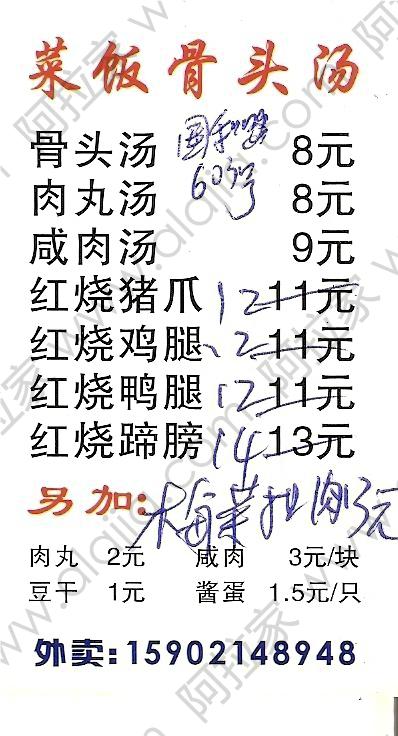 菜饭骨头汤
骨头汤 8元
国和路
60弄号
肉丸汤 8元
咸肉汤 9元
红烧猪爪 12 11元
红烧鸡腿 12 11元
红烧鸭腿 12 11元
红烧蹄膀 14 13元
另加: 梅菜扣肉 元
肉丸 2元 咸肉 3元/块
豆干 1元 酱蛋 1.5元/只
外卖:15902148948
阿拉家 www.alajia.com